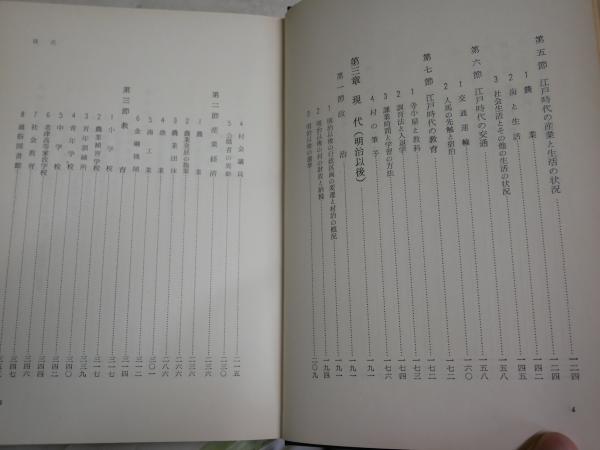 第五節 江戸時代の産業と生活の状況 一二四
1 農業 一二四
2 海と生活 一四二
3 社会生活とその他の生活の状況 一四五
第六節 江戸時代の交通 一五八
1 交通運輸 一五八
2 人馬の先触と宿泊 一六〇
第七節 江戸時代の教育 一七二
1 寺小屋と教科 一七二
2 調育法と入退学 一七四
3 課業時間と学習の方法 一七六
4 村の筆子
第三章 現代(明治以後) 一九一
第一節 政治 一九一
1 明治以後の行政区画の変遷と村治の概況 一九一
2 明治以後の村の財政と納税 一九四
3 明治以後の選挙 二〇九
4
目次
4 村会議員 二一五
5 公職者の異動 二三〇
第二節 産業経済 二三六
1 農業 二三六
2 農業発展の動力
3 農業団体 二六六
4 漁業 二八六
5 商工業 三〇一
6 金融機関 三一二
第三節 教育 三一四
1 小学校 三一七
2 農業補習学校
3 青年訓練所 三三九
4 青年学校 三四〇
5 中学校 三四二
6 老津高等家政学校 三四四
7 社会教育 三四七
8 通俗図書館